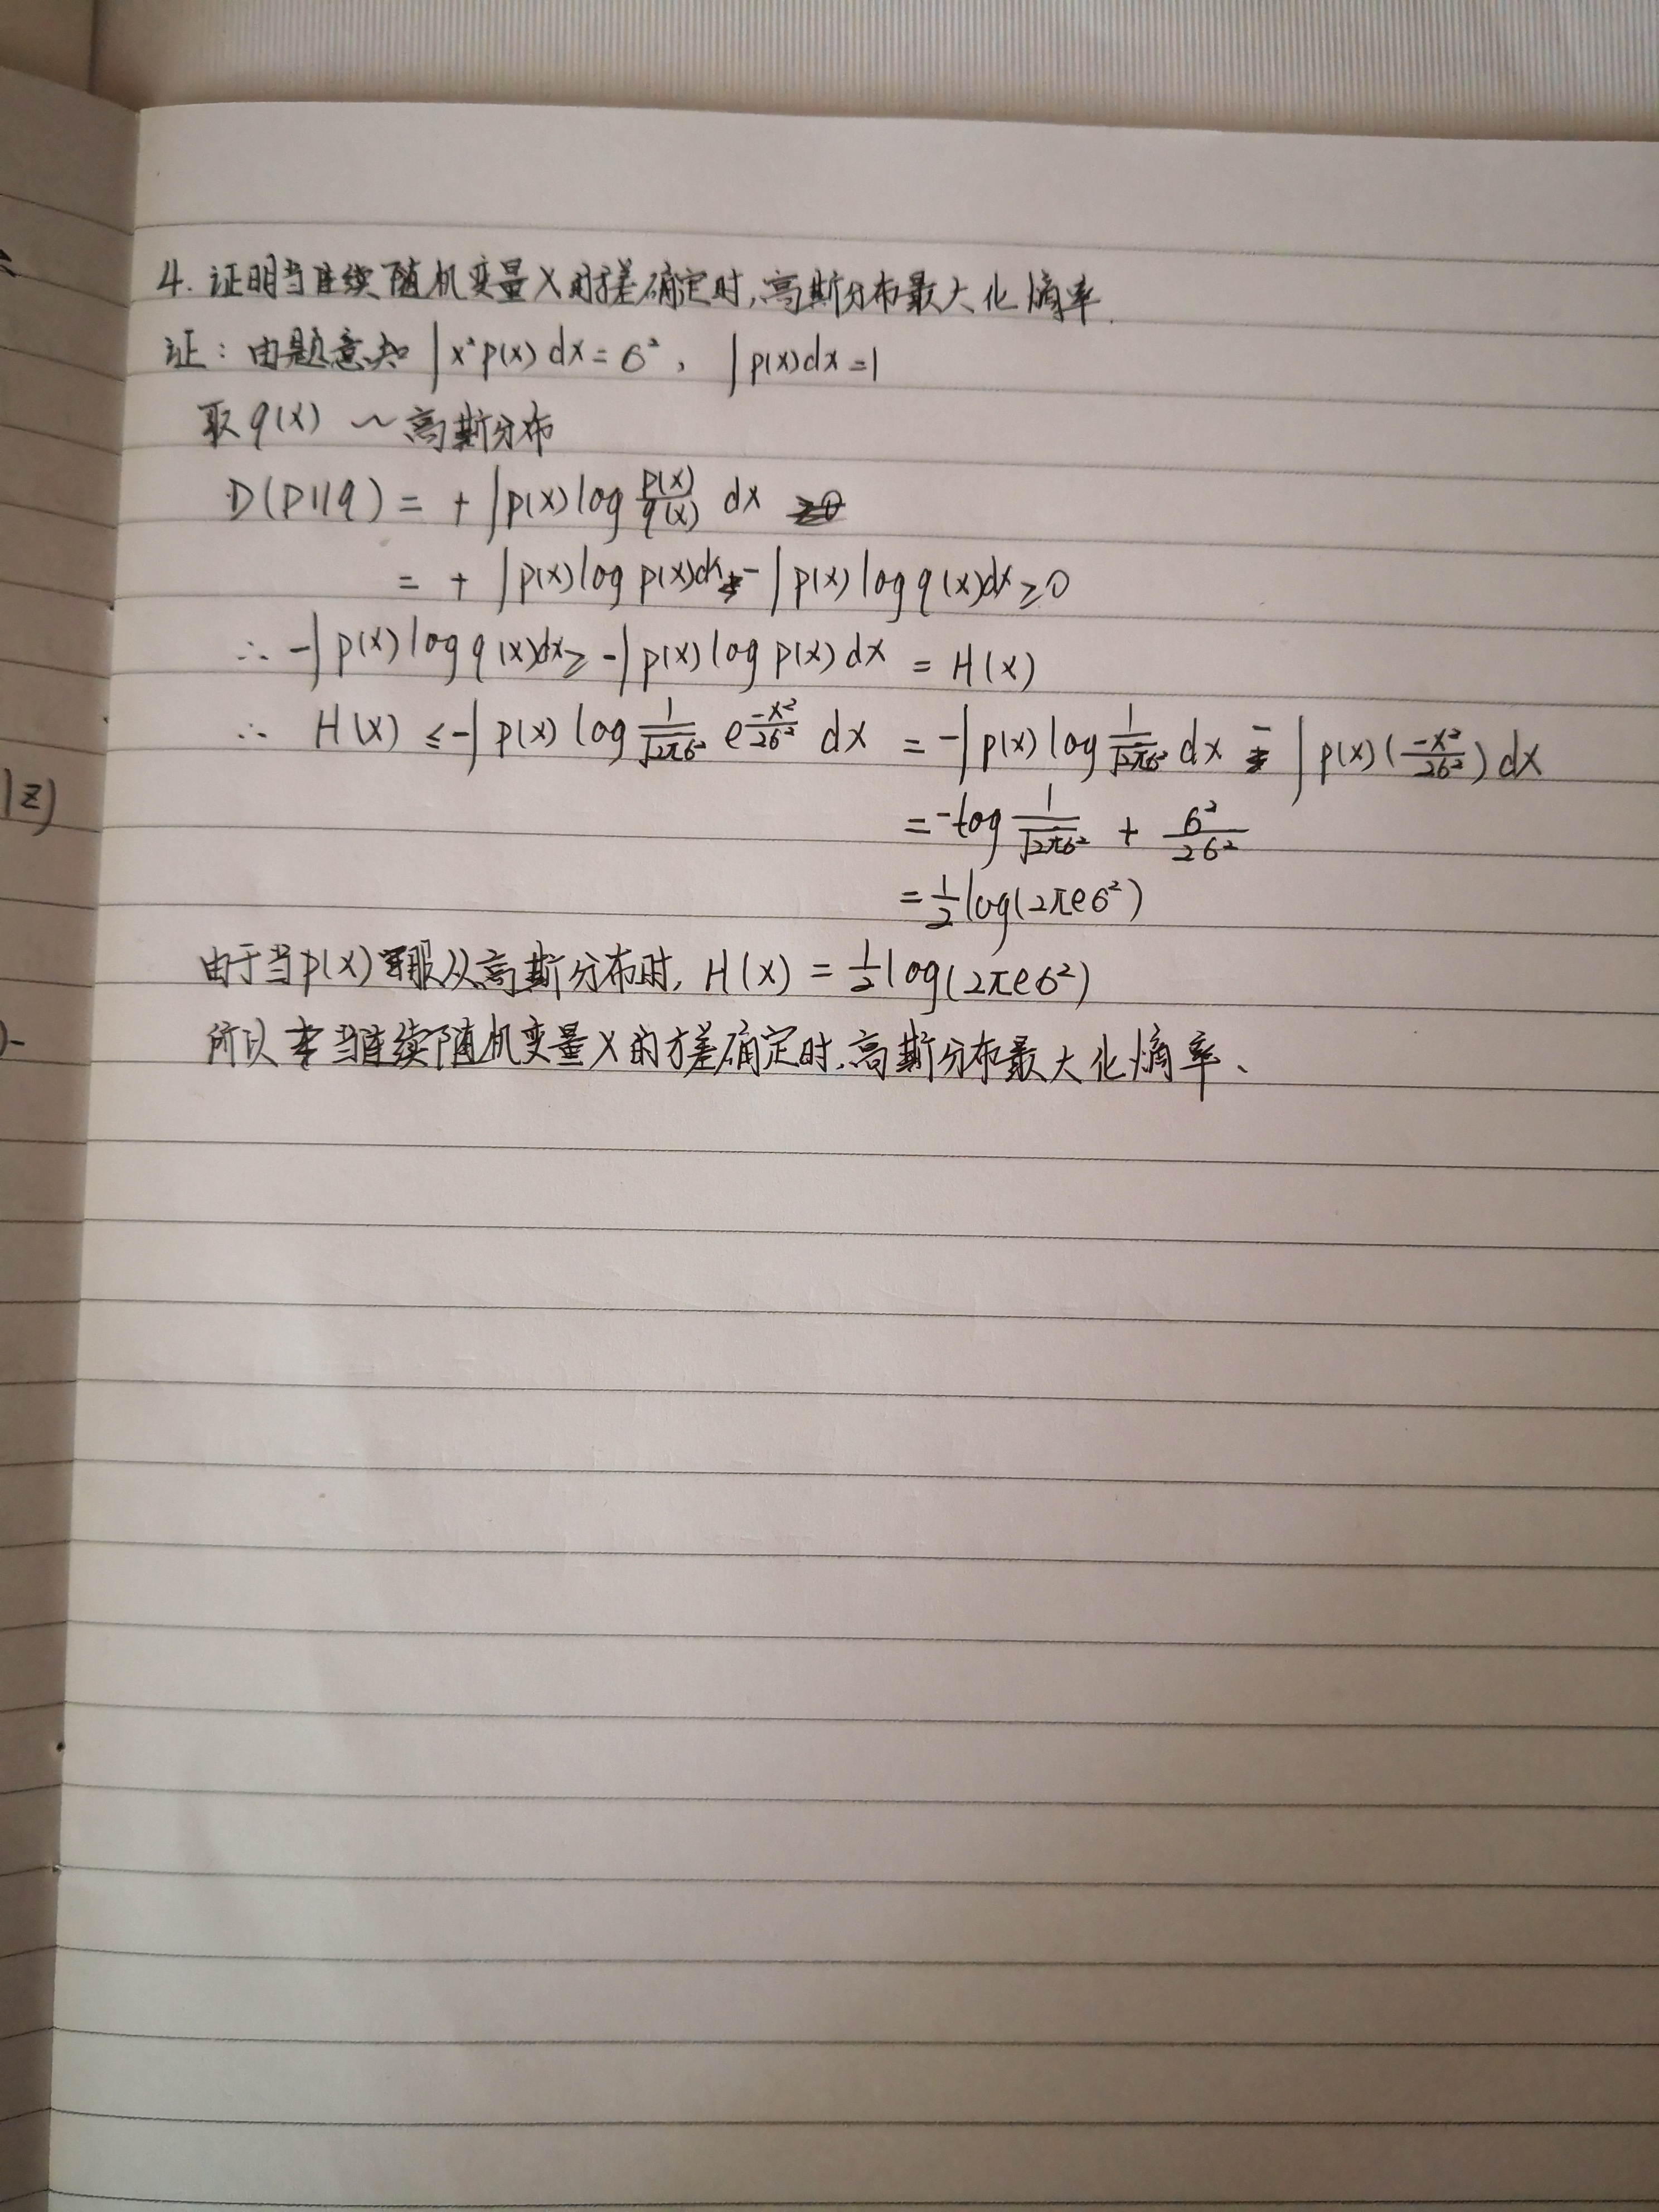 4. 证明当连续随机变量X的方差确定时,高斯分布最大化熵率.
证: 由题意知 ∫x²p(x)dx=σ², ∫p(x)dx=1
取 q(x) ~高斯分布
D(p||q) = + ∫p(x)log p(x)/q(x) dx
= + ∫p(x)log p(x)dx - ∫p(x)log q(x)dx≥0
∴ -∫p(x)log q(x)dx≥ -∫p(x)log p(x)dx = H(x)
∴ H(x) ≤ -∫p(x)log 1/√(2πσ²) e^(-x²/2σ²) dx = -∫p(x)log 1/√(2πσ²) dx - ∫p(x)(-x²/2σ²)dx
|z)
= -log 1/√(2πσ²) + σ²/2σ²
= ½log(2πeσ²)
由于当p(x)服从高斯分布时, H(x) = ½log(2πeσ²)
所以当连续随机变量X的方差确定时,高斯分布最大化熵率、